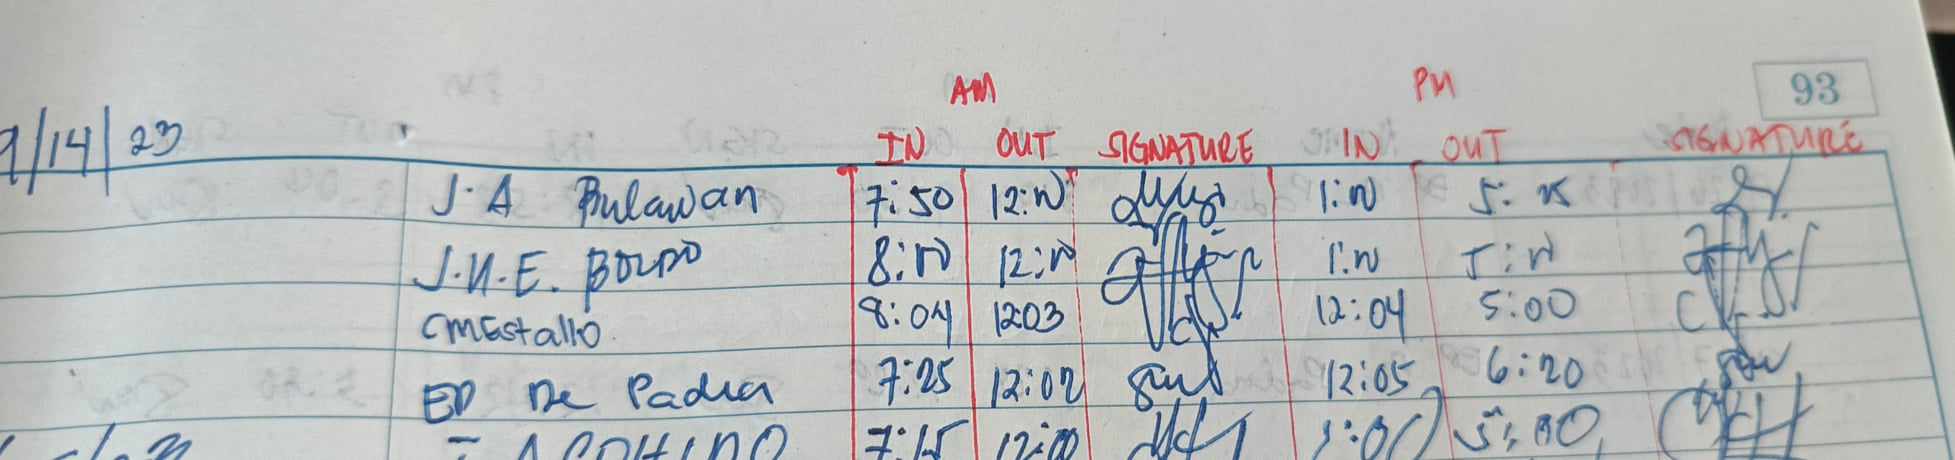 AM PM 93
9/14/23 IN OUT SIGNATURE IN OUT SIGNATURE
J.A Bulawan 7:50 12:00 1:00 5:15
J.N.E. 8:00 12:00 1:00 5:00
CMEstallo 8:04 1203 12:04 5:00
ED De Padua 7:25 12:02 12:05 6:20
7:15 12:00 1:00 5:00